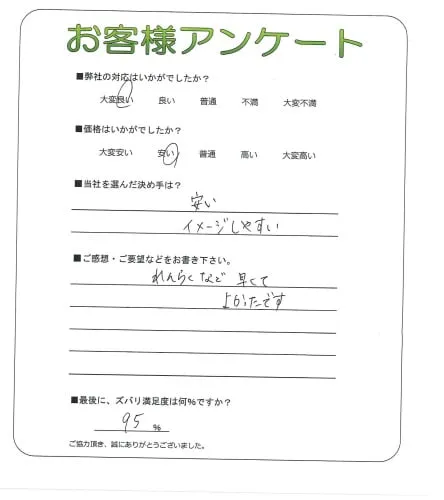 お客様アンケート
■弊社の対応はいかがでしたか？
大変良い 良い 普通 不満 大変不満
■価格はいかがでしたか？
大変安い 安い 普通 高い 大変高い
■当社を選んだ決め手は？
安い
イメージしやすい
■ご感想・ご要望などをお書き下さい。
れんらくなど 早くて
よかったです
■最後に、ズバリ満足度は何%ですか？
95 %
ご協力頂き、誠にありがとうございました。